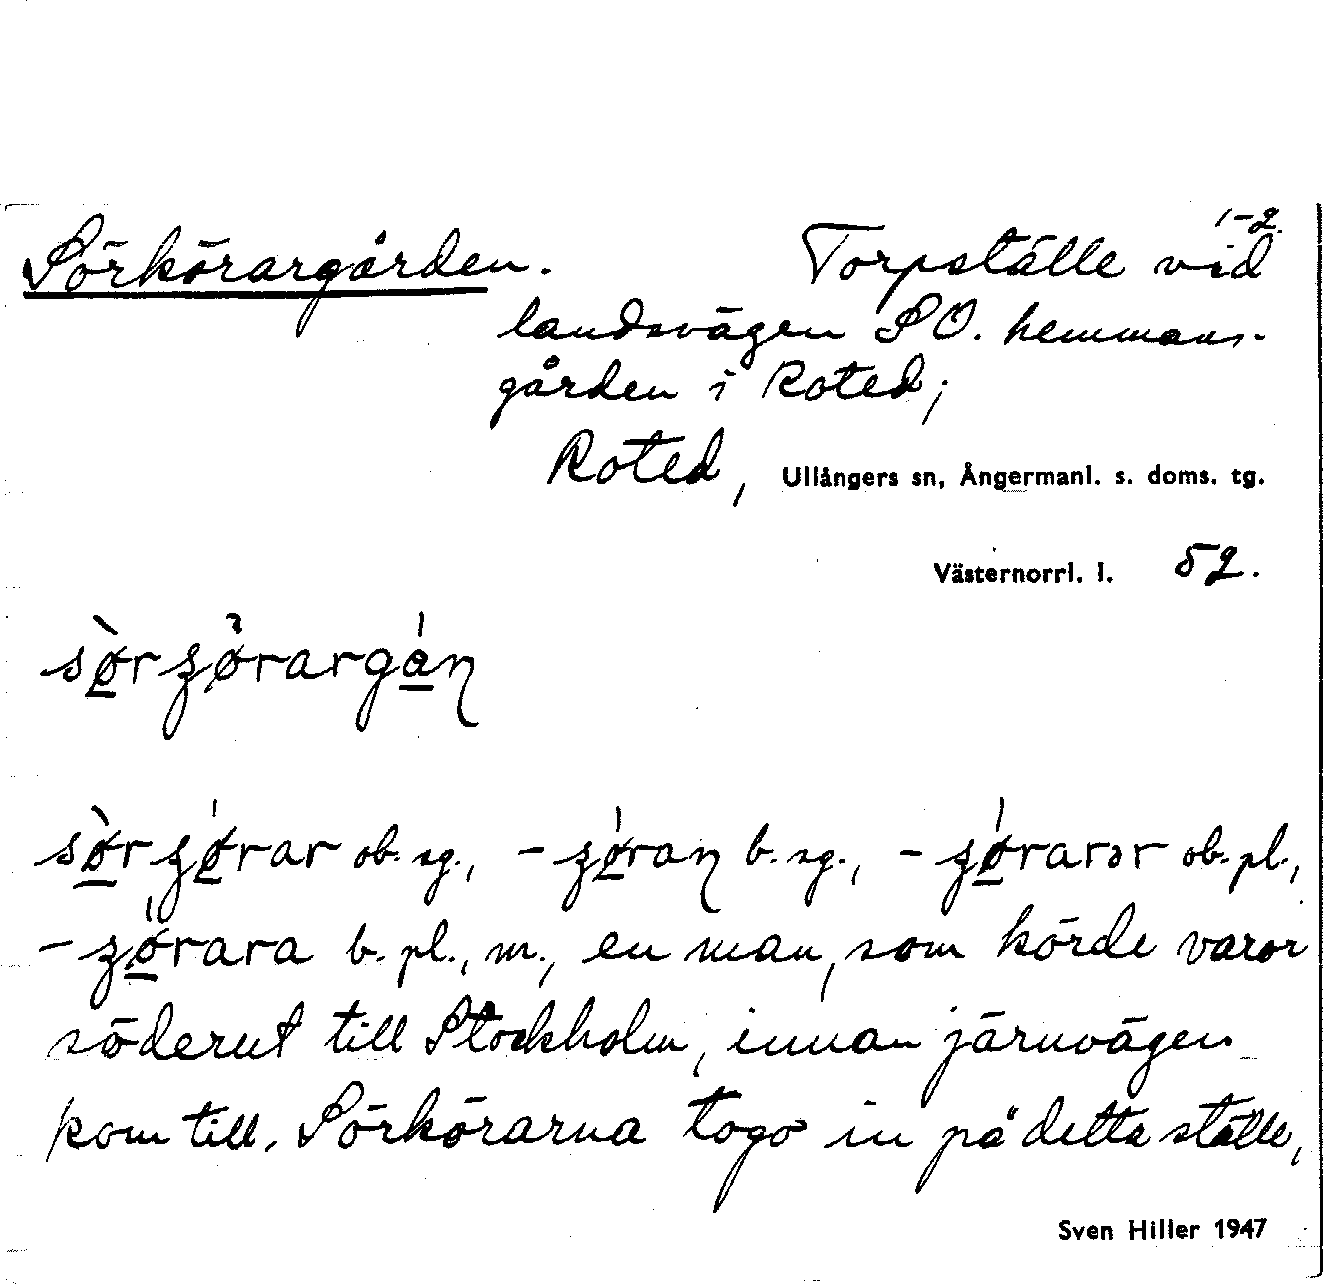 1-2.
Sörkörargården. Torpställe vid
landsvägen SO. hemmans-
gården i Roted;
Roted, Ullångers sn, Ångermanl. s. doms. tg.
Västernorrl. l. 52.
sø̀rʒørargán
sø̀rʒǿrar ob. sg., -ʒǿran b. sg., -ʒǿrarər ob. pl.,
-ʒǿrara b. pl., m., en man, som körde varor
söderut till Stockholm, innan järnvägen
kom till. Sörkörarna togo in på detta ställe,
Sven Hiller 1947